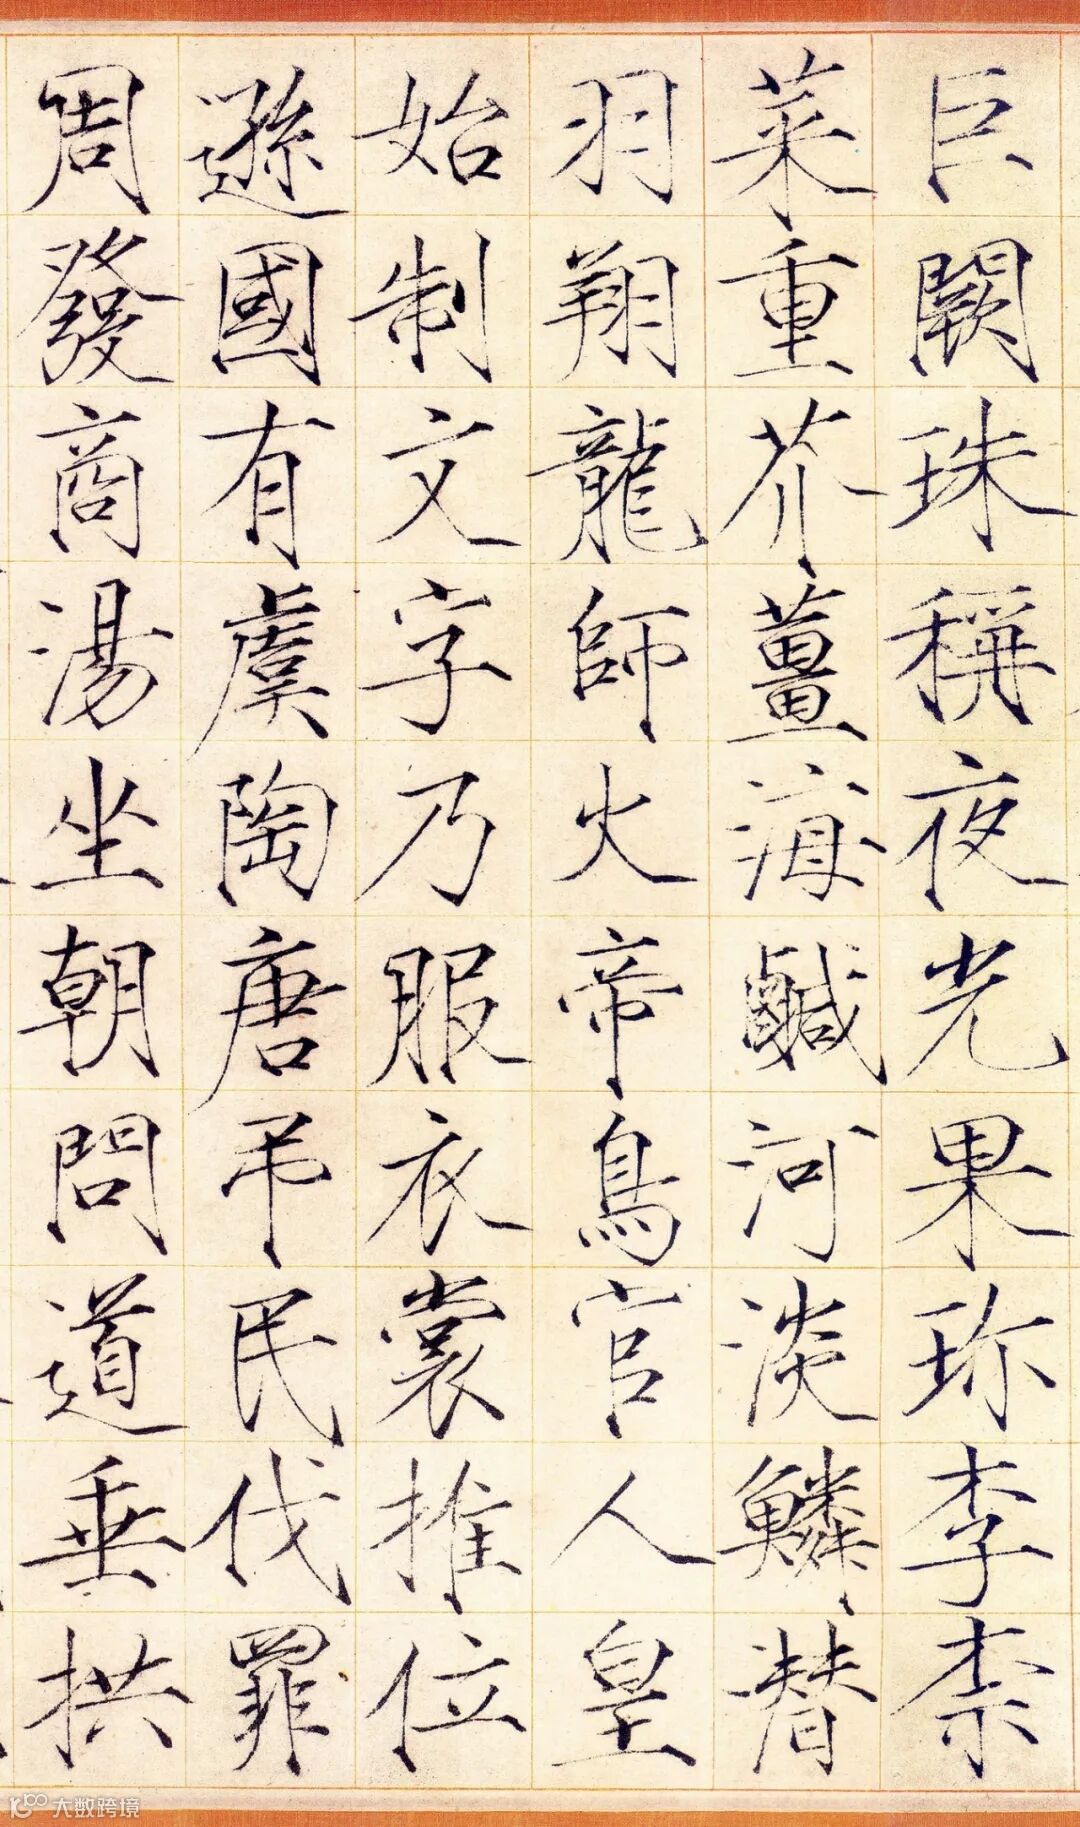 巨闕珠稱夜光果珍李柰
菜重芥薑海鹹河淡鱗潛
羽翔龍師火帝鳥官人皇
始制文字乃服衣裳推位
遜國有虞陶唐弔民伐罪
周發商湯坐朝問道垂拱
大数跨境